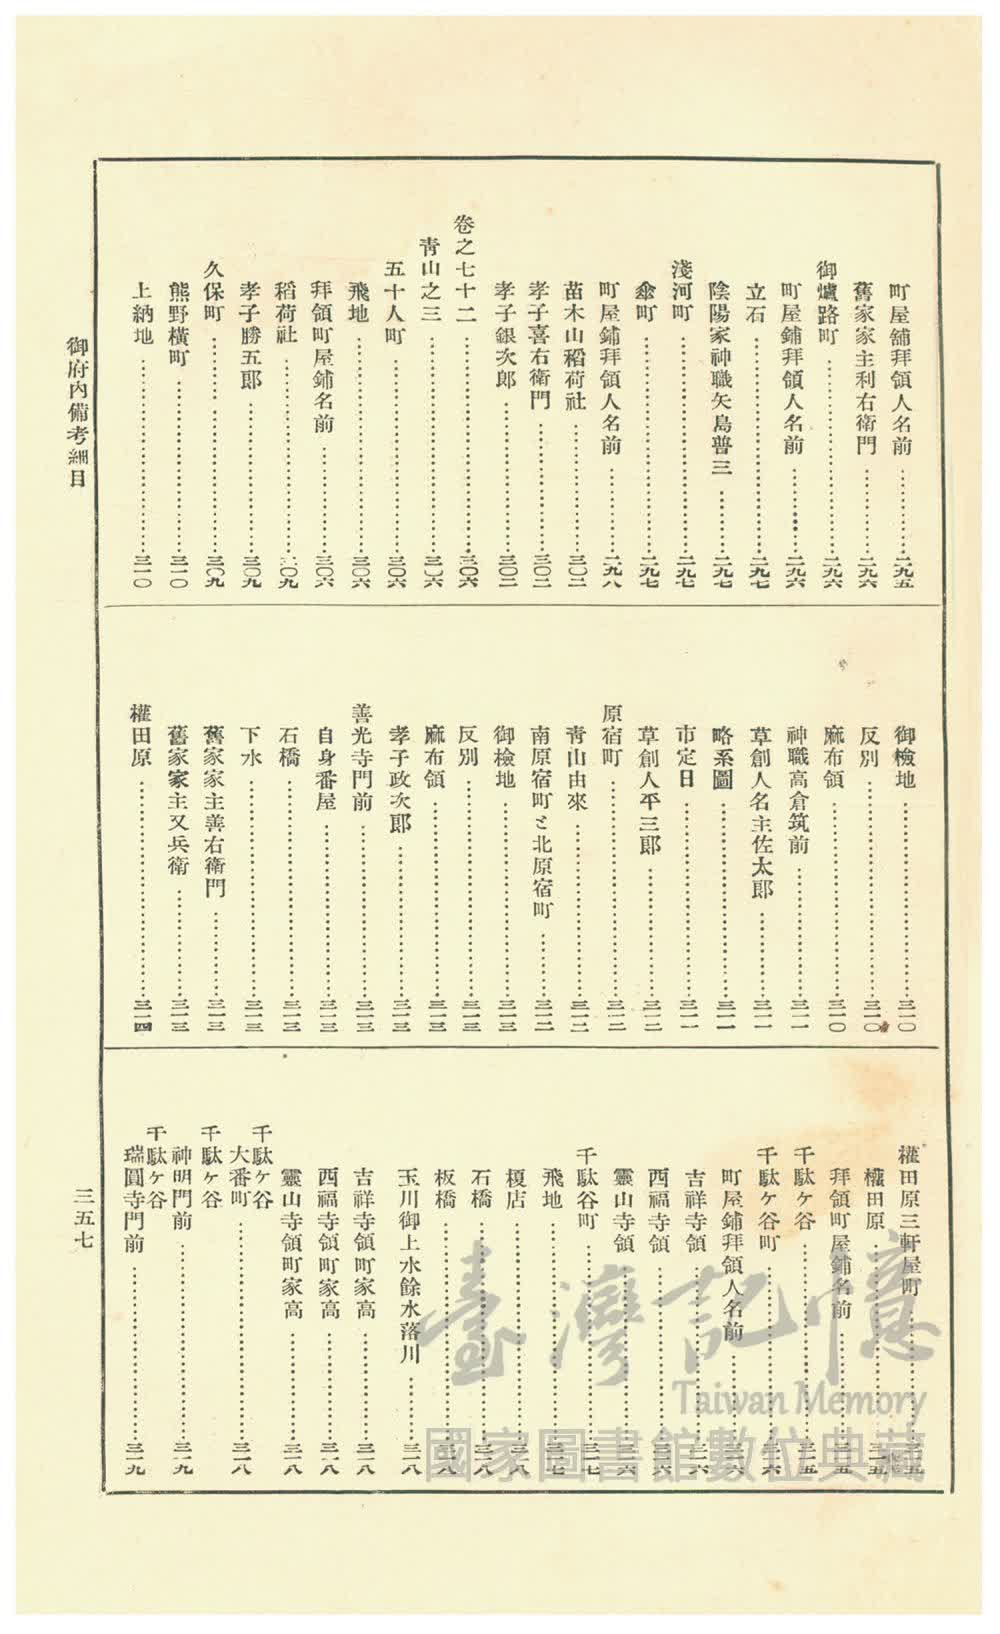 町屋舖拜領人名前…………二九五
舊家家主利右衞門…………二九六
御爐路町…………二九六
町屋鋪拜領人名前…………二九六
立石…………二九七
陰陽家神職矢島普三…………二九七
淺河町…………二九七
傘町…………二九七
町屋鋪拜領人名前…………二九八
苗木山稻荷社…………三〇二
孝子喜右衞門…………三〇二
孝子銀次郎…………三〇二
卷之七十二…………三〇六
靑山之三…………三〇六
五十人町…………三〇六
飛地…………三〇六
拜領町屋鋪名前…………三〇六
稻荷社…………三〇九
孝子勝五郎…………三〇九
久保町…………三〇九
熊野橫町…………三一〇
上納地…………三一〇
御檢地…………三一〇
反別…………三一〇
麻布領…………三一〇
神職高倉筑前…………三一一
草創人名主佐太郎…………三一一
略系圖…………三一一
市定日…………三一一
草創人平三郎…………三一二
原宿町…………三一二
靑山由來…………三一二
南原宿町と北原宿町…………三一二
御檢地…………三一三
反別…………三一三
麻布領…………三一三
孝子政次郎…………三一三
善光寺門前…………三一三
自身番屋…………三一三
石橋…………三一三
下水…………三一三
舊家家主善右衞門…………三一三
舊家家主又兵衞…………三一三
權田原…………三一四
權田原三軒屋町…………三一五
權田原…………三一五
拜領町屋鋪名前…………三一五
千駄ケ谷…………三一五
千駄ケ谷町…………三一六
町屋鋪拜領人名前…………三一六
吉祥寺領…………三一六
西福寺領…………三一六
靈山寺領…………三一六
千駄谷町…………三一七
飛地…………三一七
榎店…………三一八
石橋…………三一八
板橋…………三一八
玉川御上水餘水落川…………三一八
吉祥寺領町家高…………三一八
西福寺領町家高…………三一八
靈山寺領町家高…………三一八
千駄ケ谷
大番町…………三一八
千駄ケ谷
神明門前…………三一九
千駄ケ谷
瑞圓寺門前…………三一九
御府內備考細目
三五七
臺灣記憶
Taiwan Memory
國家圖書館數位典藏